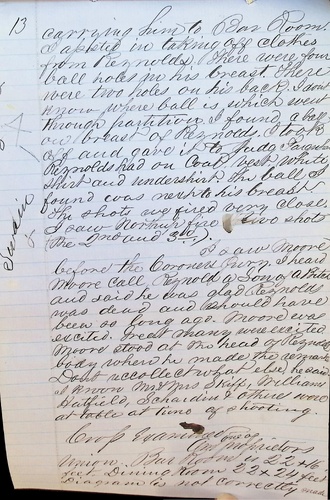 13
carrying him to Bar Room.
I assisted in taking off clothes
from Reynolds. There were four
ball holes in his breast. There
were two holes on his back. I dont
know where ball is, which went
through partition. I found a ball
on breast of Reynolds. I took
off and gave it to Judge
Reynolds had on Coat, Vest, White
Shirt and undershirt. The ball I
found was next to his breast
The shots we fired very close.
I saw two shots
The 2nd and 3rd).
I saw Moore
before the Coroners Jury. I heard
Moore call Reynolds a Son of a Bitch
and said he was glad Reynolds
was dead and should have
been so long ago. Moore was
excited. Great many were excited
Moore stood at the head of Reynolds
body when he made the remark
Dont reccollect what else he said
I know Mr & Mrs Skiff, Williams
Hatfield, & others were
at table at time of shooting.
Cross Examined
one of Proprietors
Union. Bar Room 22 x 16
feet. Dining room 22 x 24 feet
Diagram is not correctly